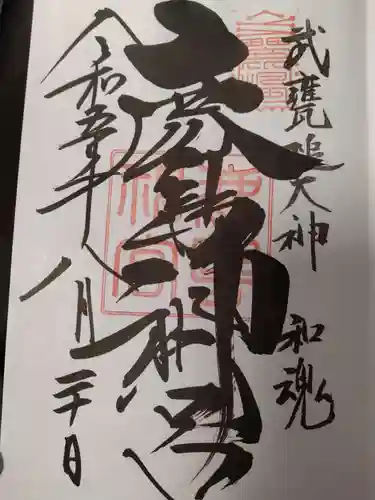 武甕槌大神　和魂
鹿島神宮
令和五年八月二十日